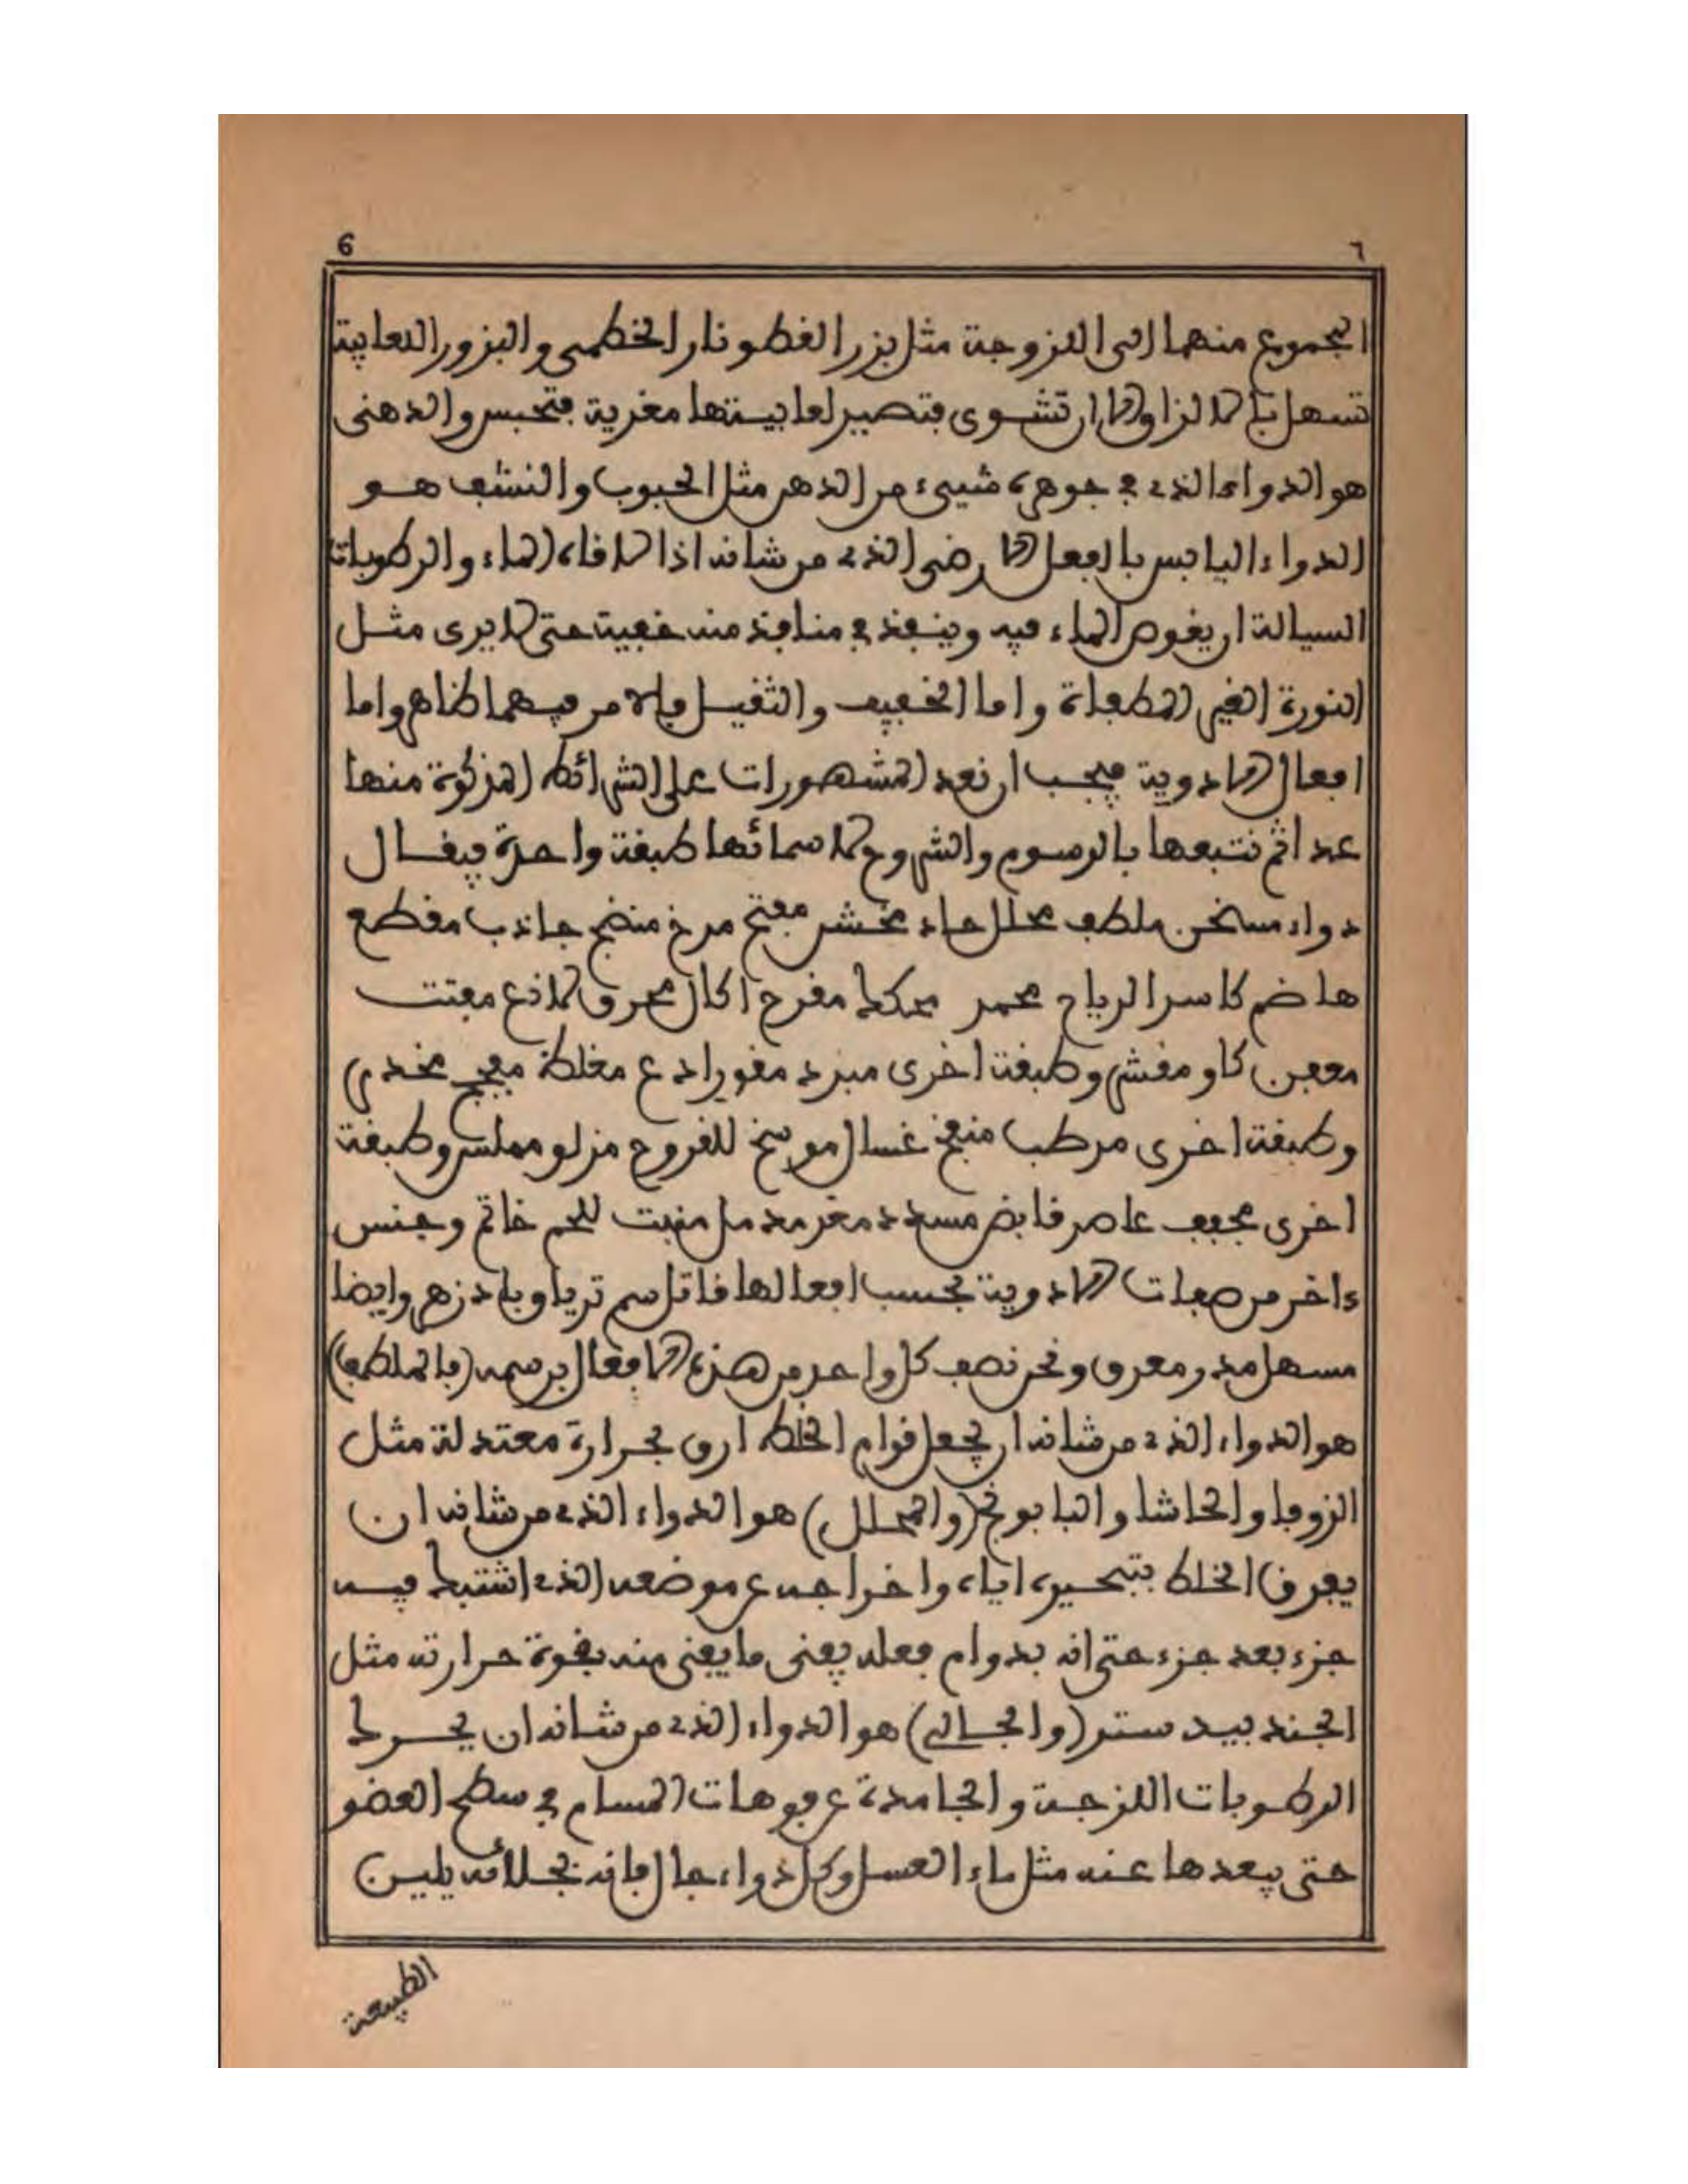 6 ٦
المجموع منها الى اللزوجة مثل بزر القطونا والخطمى والبزور اللعابية
تسهل بالازلاق الا ان تشوى فتصير لعابيتها مغرية فتحبس والدهنى
هو الدواء الذى فى جوهره شيىء من الدهن مثل الحبوب والنشف هو
الدواء اليابس بالفعل الارضى الذى من شانه اذا لاقاه الماء والرطوبات
السيالة ان يغوص الماء فيه وينفذ فى منافذ منه خفية حتى لا يرى مثل
النورة الغير المطفاة واما الخفيف والثقيل فالامر فيهما ظاهر واما
افعال الادوية فيجب ان نعد المشهورات على الشرائط المذكورة منها
عدا ثم نتبعها بالرسوم والشروح لاسمائها طبقة واحدة فيقال
دواء مسخن ملطف محلل حاد مخشن مفتح مرخ منضج جاذب مقطع
هاضم كاسر الرياح محمر محكك مقرح اكال محرق لاذع مفتت
معفن كاو مقشر وطبقة اخرى مبرد مقو رادع مغلظ مفجج مخدر
وطبقة اخرى مرطب منفخ غسال موسخ للقروح مزلق مملس وطبقة
اخرى مجفف عاصر قابض مسدد مغر مدمل منبت للحم خاتم وجنس
ءاخر من صفات الادوية بحسب افعالها قاتل سم ترياق بادزهر وايضا
مسهل مدر معرق ونحن نصف كل واحد من هذه الافعال برسمه (فالملطف)
هو الدواء الذى من شانه ان يجعل قوام الخلط ارق بحرارة معتدلة مثل
الزوفا والحاشا والبابونج (والمحلل) هو الدواء الذى من شانه ان
يفرق الخلط بتبخيره اياه واخراجه عن موضعه الذى اشتبك فيه
جزء بعد جزء حتى انه بدوام فعله يفنى ما يفنى منه بقوة حرارته مثل
الجندبيدستر (والجالى) هو الدواء الذى من شانه ان يحرك
الرطوبات اللزجة والجامدة عن فوهات المسام فى سطح العضو
حتى يبعدها عنه مثل ماء العسل وكل دواء جال فانه بجلائه يلين
الطبيعة